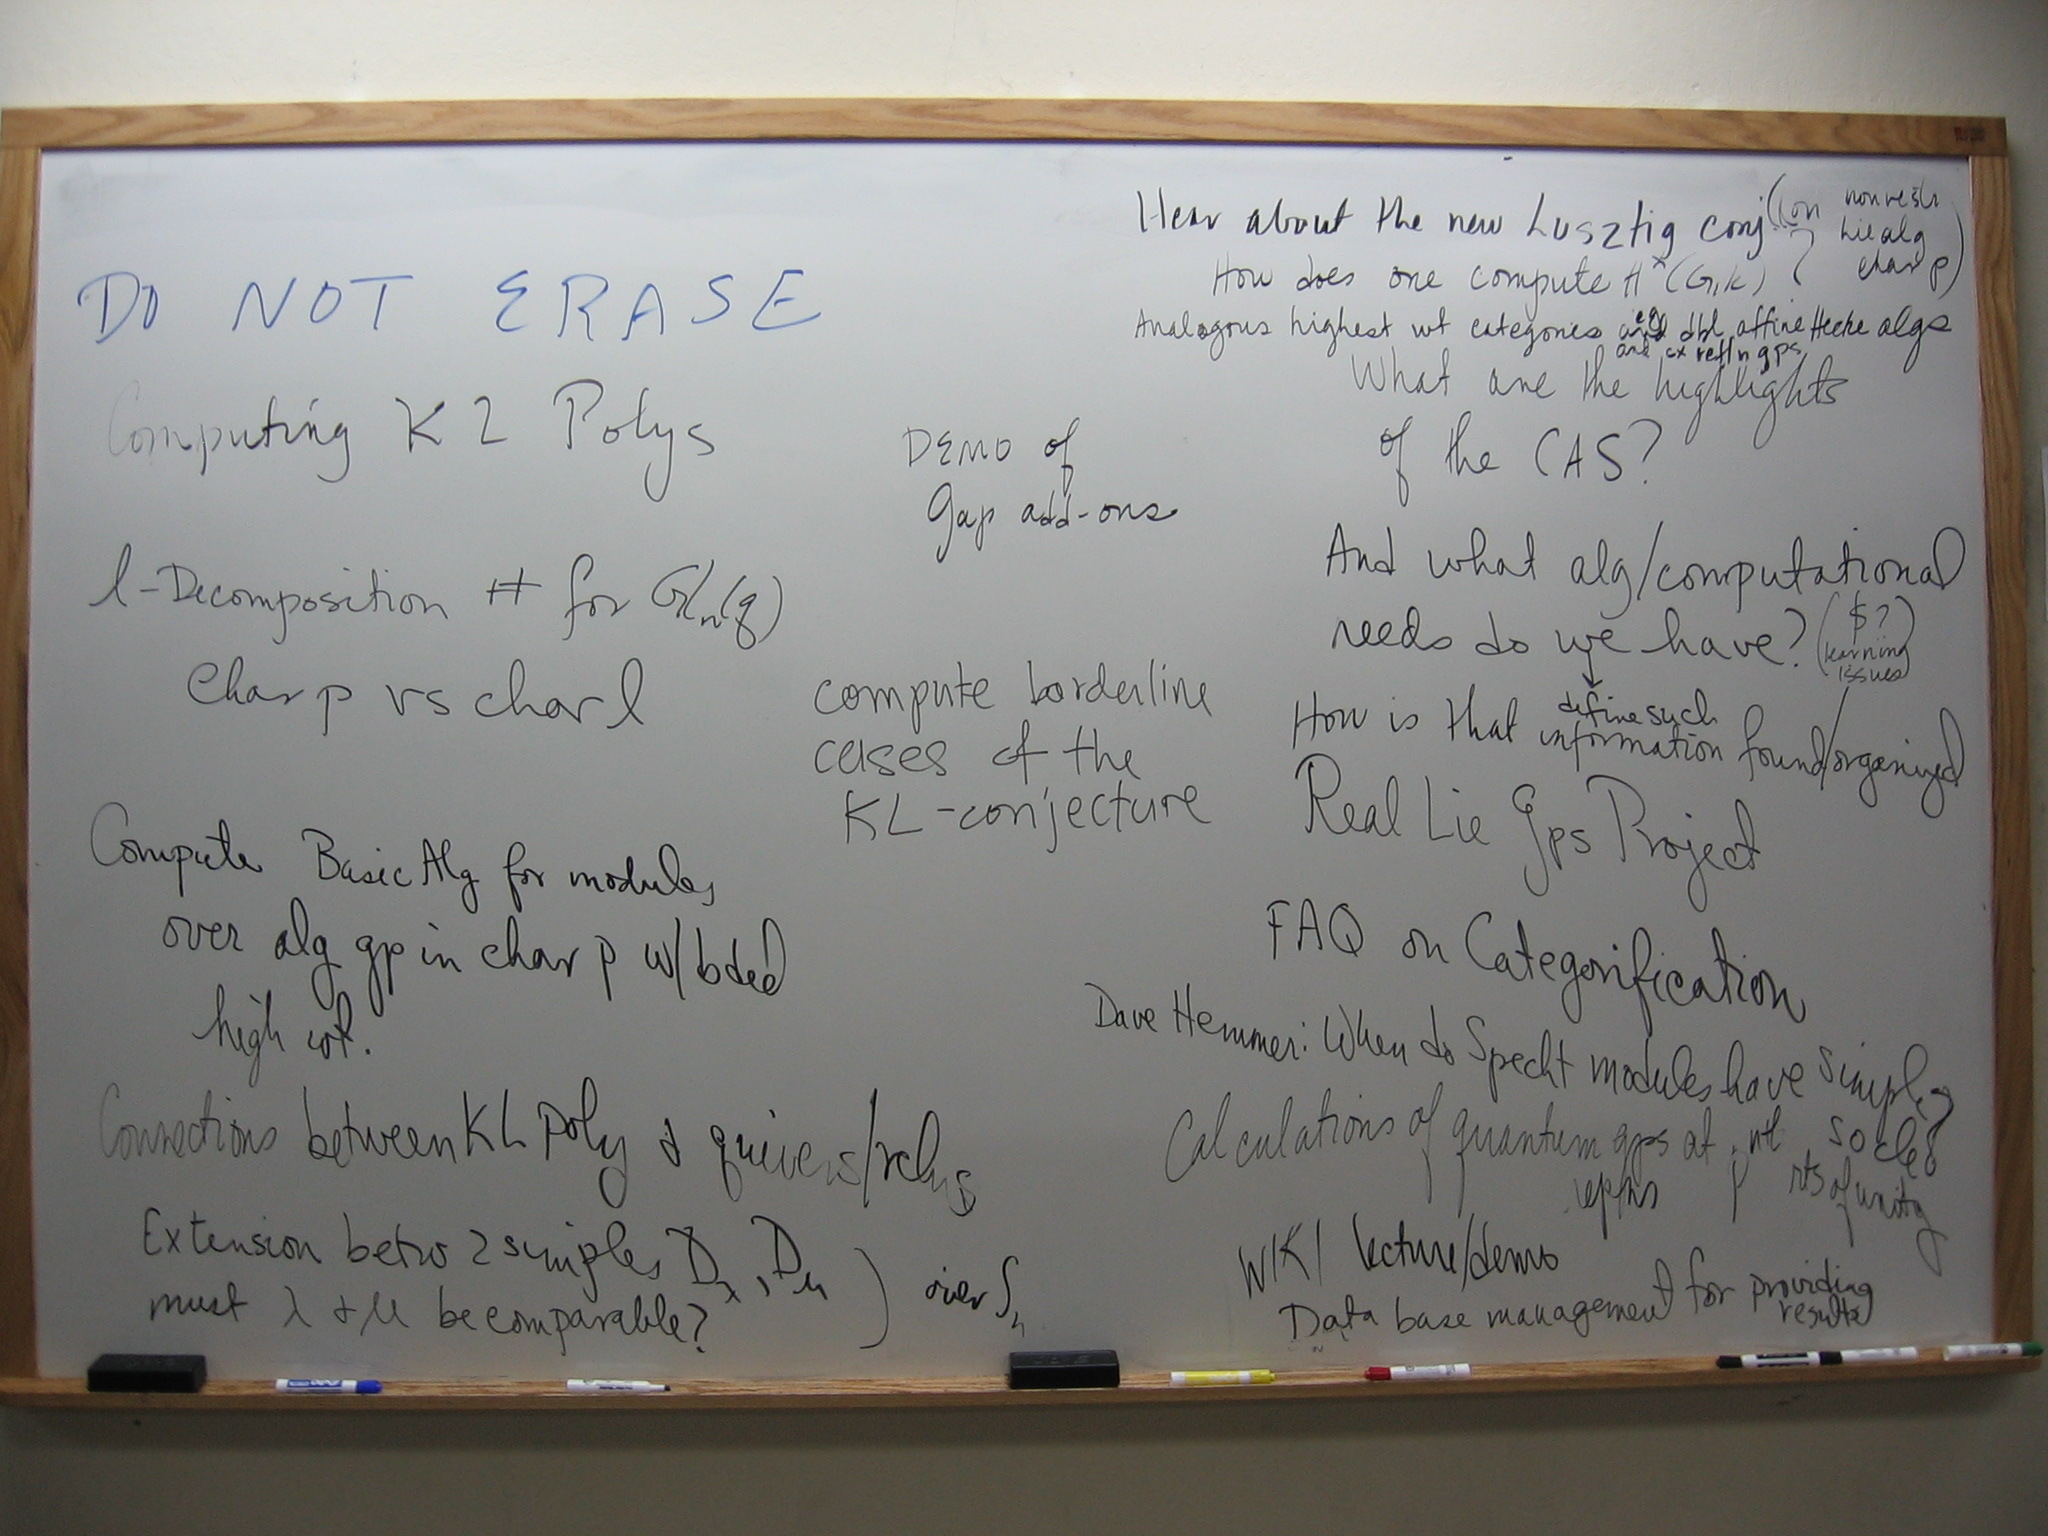 DO NOT ERASE
Computing KL Polys
l-Decomposition # for Gln(q)
char p vs char l
Compute Basic Alg for modules
over alg gp in char p w/ bded
high wt.
Connections between KL poly & quivers/relns
Extension betw 2 simples Dλ, Dμ
must λ & μ be comparable? ) over Sn
DEMO of
gap add-ons
compute borderline
cases of the
KL-conjecture
Hear about the new Lusztig conj (on nonrestr
Lie alg
char p)
How does one compute H*(G,k) ?
Analogous highest wt categories eg dbl affine Hecke algs
and cx refln gps
What are the highlights
of the CAS?
And what alg/computational
needs do we have? ($?
learning
issues)
define such
How is that information found/organized
Real Lie Gps Project
FAQ on Categorification
Dave Hemmer: When do Specht modules have simple
socles?
Calculations of quantum gps at
repns rts of unity
WIKI lecture/demo
Data base management for providing
results